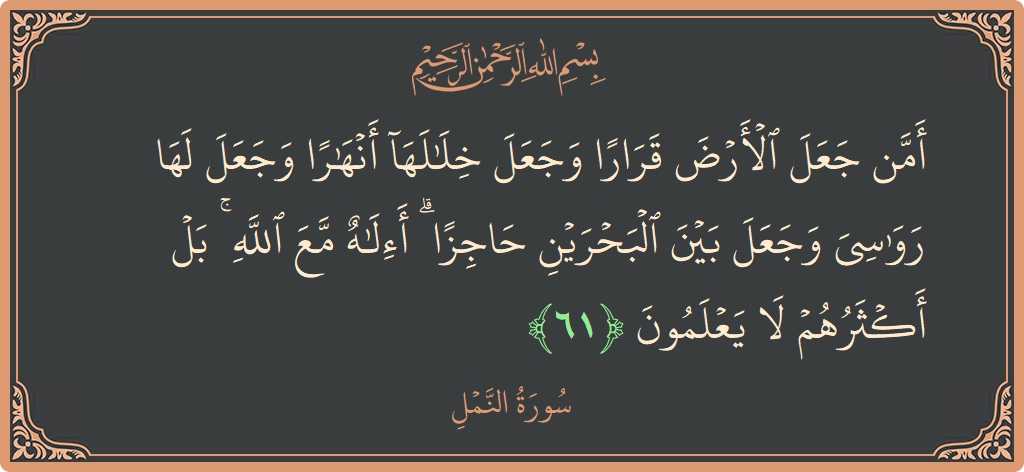 بِسْمِ اللَّهِ الرَّحْمَٰنِ الرَّحِيمِ
أَمَّن جَعَلَ ٱلْأَرْضَ قَرَارًا وَجَعَلَ خِلَٰلَهَآ أَنْهَٰرًا وَجَعَلَ لَهَا
رَوَٰسِىَ وَجَعَلَ بَيْنَ ٱلْبَحْرَيْنِ حَاجِزًا ۗ أَءِلَٰهٌ مَّعَ ٱللَّهِ ۚ بَلْ
أَكْثَرُهُمْ لَا يَعْلَمُونَ ﴿٦١﴾
سُورَةُ النَّمْلِ